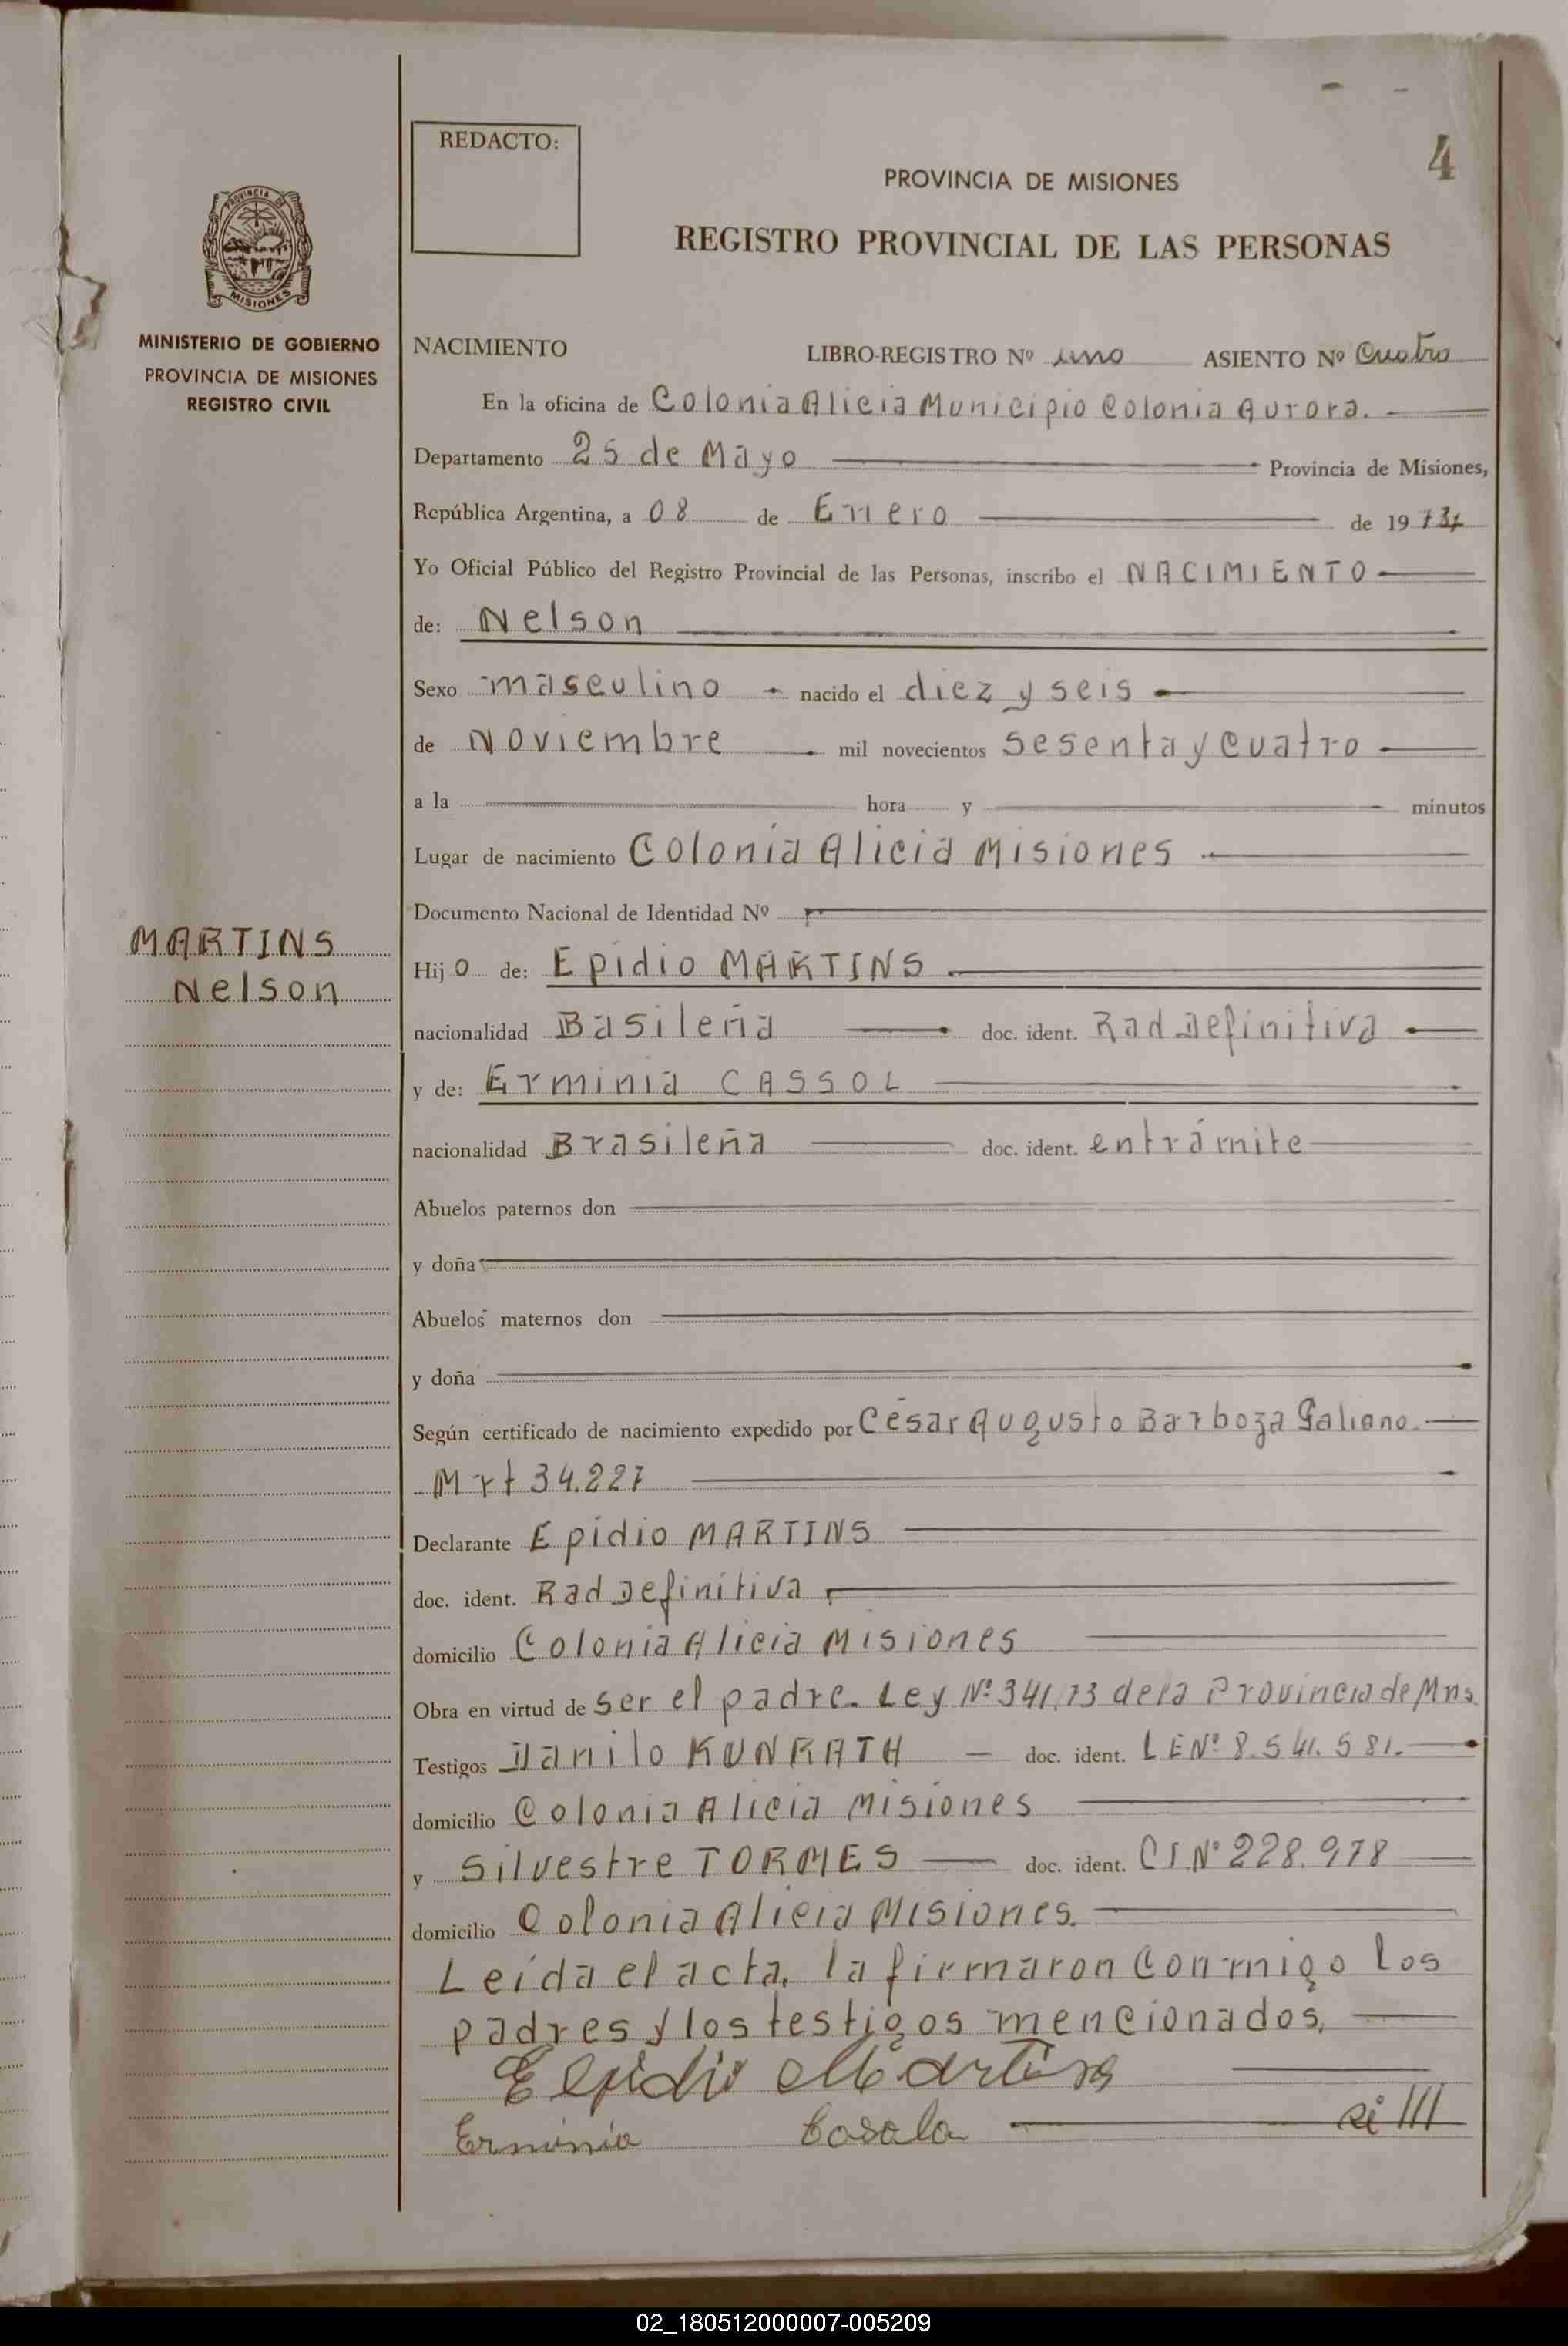 4
REDACTO:
PROVINCIA DE MISIONES
REGISTRO PROVINCIAL DE LAS PERSONAS
PROVINCIA DE
MISIONES
MINISTERIO DE GOBIERNO
PROVINCIA DE MISIONES
REGISTRO CIVIL
NACIMIENTO LIBRO-REGISTRO Nº uno ASIENTO Nº Cuatro
En la oficina de Colonia Alicia Municipio Colonia Aurora.
Departamento 25 de Mayo Provincia de Misiones,
República Argentina, a 08 de Enero de 19
Yo Oficial Público del Registro Provincial de las Personas, inscribo el NACIMIENTO
de: Nelson
Sexo masculino nacido el diez y seis
de Noviembre mil novecientos sesenta y cuatro
a la hora y minutos
Lugar de nacimiento Colonia Alicia Misiones
Documento Nacional de Identidad Nº
MARTINS
Nelson
Hijo de: Epidio MARTINS
nacionalidad Basileña doc. ident. Rad Definitiva
y de: Erminia CASSOL
nacionalidad Brasileña doc. ident. entrámite
Abuelos paternos don
y doña
Abuelos maternos don
y doña
Según certificado de nacimiento expedido por César Augusto Barboza Galiano.
Mrt 34.227
Declarante Epidio MARTINS
doc. ident. Rad Definitiva
domicilio Colonia Alicia Misiones
Obra en virtud de ser el padre. Ley Nº 341/73 de la Provincia de Mns.
Testigos Danilo KUNRATH doc. ident. LE Nº 8.541.581.
domicilio Colonia Alicia Misiones
y Silvestre TORMES doc. ident. C I. Nº 228.978
domicilio Colonia Alicia Misiones.
Leída el acta, la firmaron conmigo los
padres y los testigos mencionados.
Elpidio Martins
Erminia Casola
02_180512000007-005209